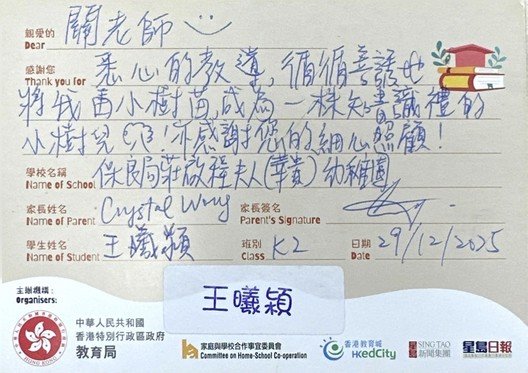 親愛的 關老師
Dear
感謝您 悉心的教導，循循善誘地
Thank you for
將我由小樹苗成為一棵知書識禮的
小樹兒！亦感謝您的細心照顧！
學校名稱 保良局莊啟程夫人(華貴)幼稚園
Name of School
家長姓名 Crystal Wong 家長簽名
Name of Parent Parent's Signature
學生姓名 王曦穎 班別 K2 日期 29/12/2025
Name of Student Class Date
王曦穎
主辦機構：
Organisers:
中華人民共和國
香港特別行政區政府
教育局
家庭與學校合作事宜委員會
Committee on Home-School Co-operation
香港教育城
HKedCity
星島 SING TAO
新聞集團
星島日報